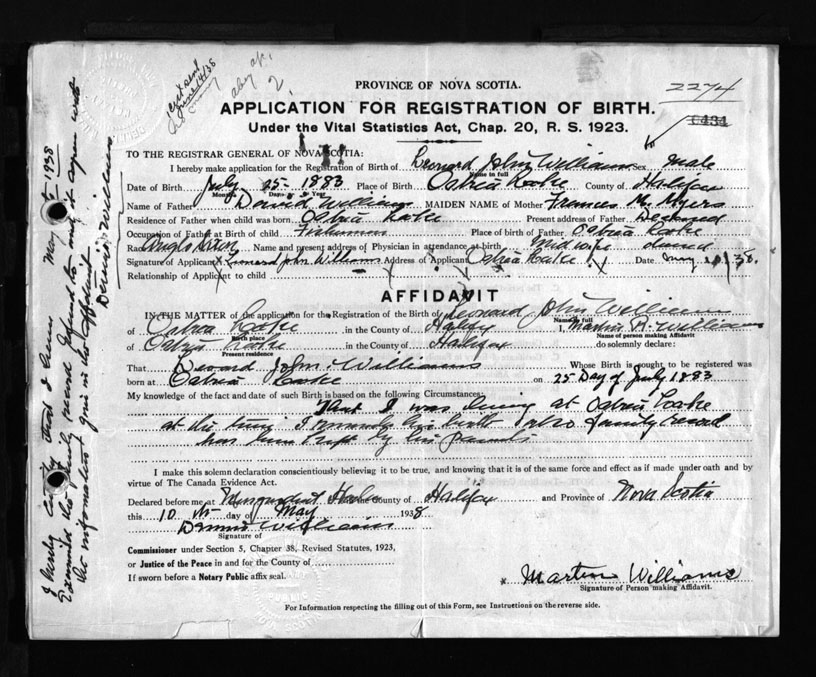 PROVINCE OF NOVA SCOTIA.
2274
APPLICATION FOR REGISTRATION OF BIRTH.
Under the Vital Statistics Act, Chap. 20, R. S. 1923.
TO THE REGISTRAR GENERAL OF NOVA SCOTIA:
I hereby make application for the Registration of Birth of Leonard John Williams Sex Male
Name in full
Date of Birth July 25 - 1883 Place of Birth County of Halifax
Month Day Year
Name of Father David Williams MAIDEN NAME of Mother Frances M. Myers
Residence of Father when child was born Present address of Father Deceased
Occupation of Father at Birth of child Fisherman Place of birth of Father
Race Name and present address of Physician in attendance at birth Midwife
Signature of Applicant John Williams Address of Applicant Date May
Relationship of Applicant to child
AFFIDAVIT
IN THE MATTER of the application for the Registration of the Birth of Leonard John Williams
Name in full
of in the County of Halifax I, Martin Williams
Birth place Name of person making Affidavit
of in the County of Halifax do solemnly declare:
Present residence
That John Williams Whose Birth is sought to be registered was
born at on 25 Day of July 1883
My knowledge of the fact and date of such Birth is based on the following Circumstances
That I was living at
at the time I remember his birth also family record
has been kept by his parents
I make this solemn declaration conscientiously believing it to be true, and knowing that it is of the same force and effect as if made under oath and by
virtue of The Canada Evidence Act.
Declared before me at Musquodoboit Harbor in the County of Halifax and Province of Nova Scotia
this 10 th day of May 1938
Dennis Williams
Signature of
Commissioner under Section 5, Chapter 38, Revised Statutes, 1923,
or Justice of the Peace in and for the County of
If sworn before a Notary Public affix seal.
Martin Williams
Signature of Person making Affidavit.
For Information respecting the filling out of this Form, see Instructions on the reverse side.
I hereby certify that I have May 1938
Examined the family record and find it to agree with
the information given in the Affidavit
Dennis Williams